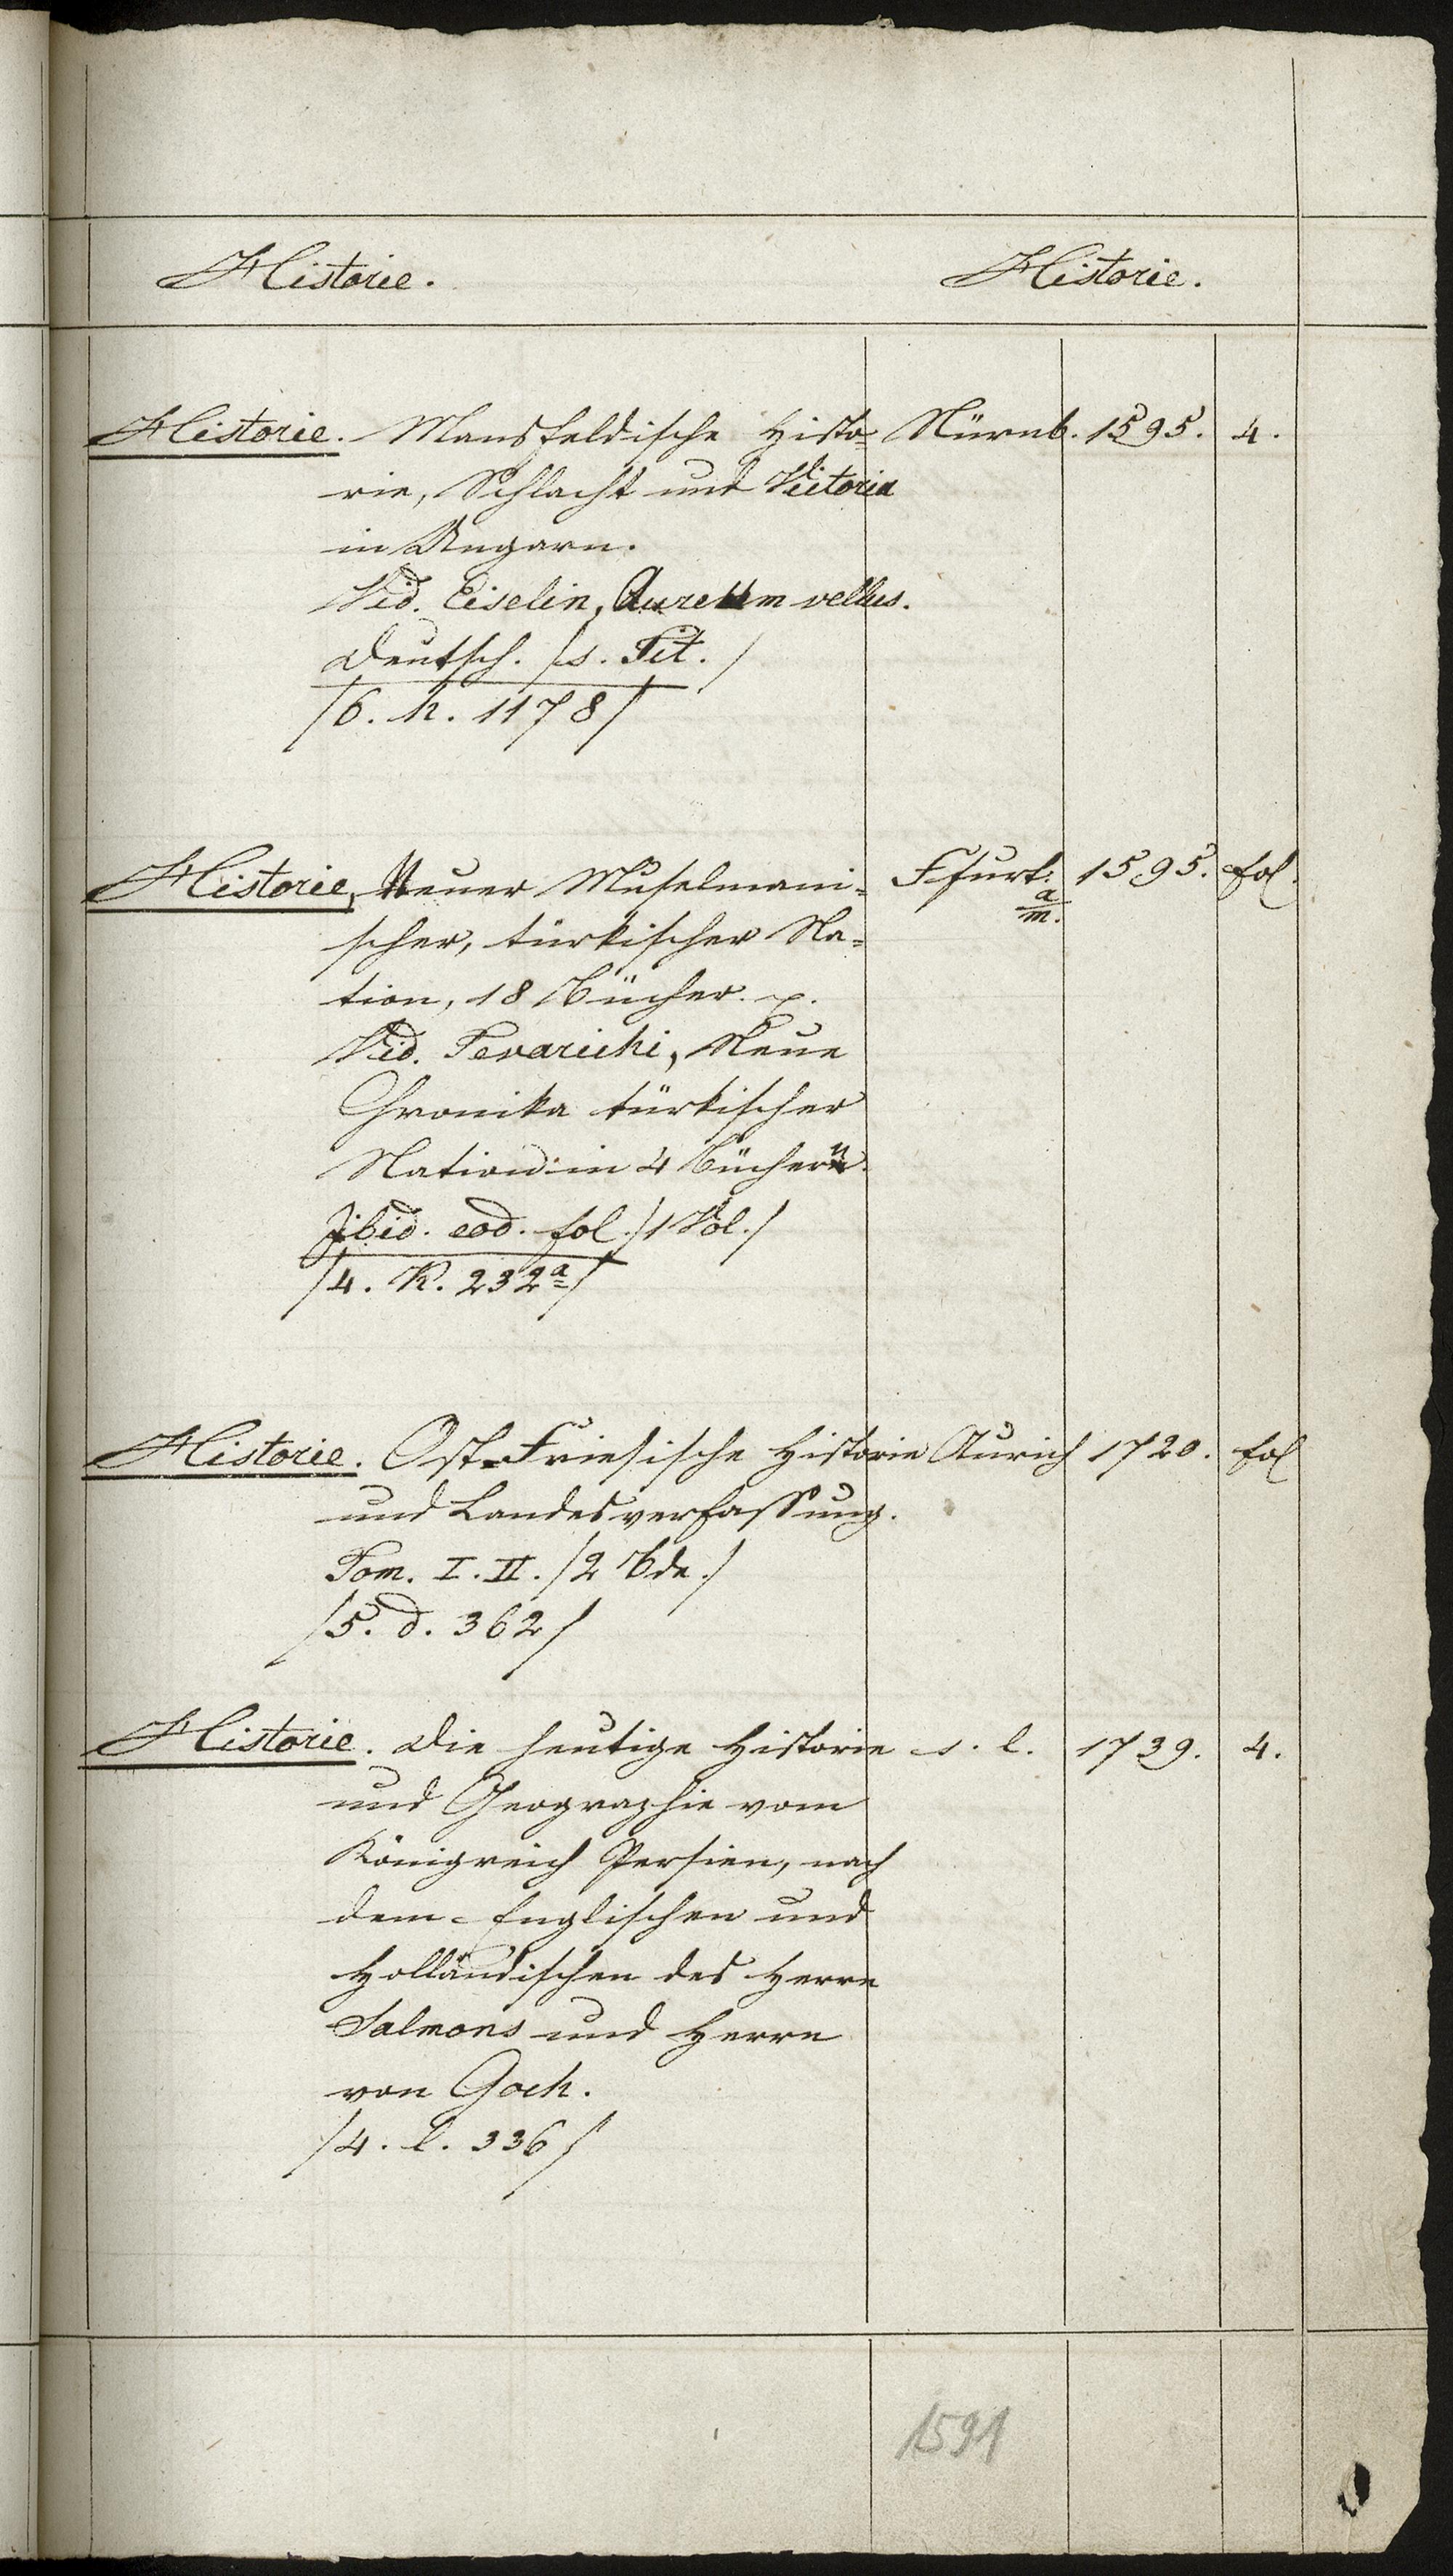 Historie. Historie.
Historie. Mansfeldische Histo= Nürnb. 1595. 4.
rie, Schlacht und Victoria
in Ungarn.
Vid. Eiselin, Aureum vellus.
Deutsch. /s. Tit./
/6. h. 1178/
Historie, Neuer Muselmani= Ffurt. a/m. 1595. fol.
scher, türkischer Na=
tion, 18 Bücher.
Vid. Tevarichi, Neue
Chronika türkischer
Nation in 4 Büchern.
Ibid. eod. fol. /1 Vol./
/4. K. 232a/
Historie. Ost-Friesische Historie Aurich 1720. fol
und Landesverfassung.
Tom. I. II. /2 Bde./
/5. d. 362/
Historie. Die heutige Historie s. l. 1739. 4.
und Geographie vom
Königreich Persien, nach
dem Englischen und
Holländischen des Herrn
Salmons und Herrn
von Goch.
/4. l. 336/
1591